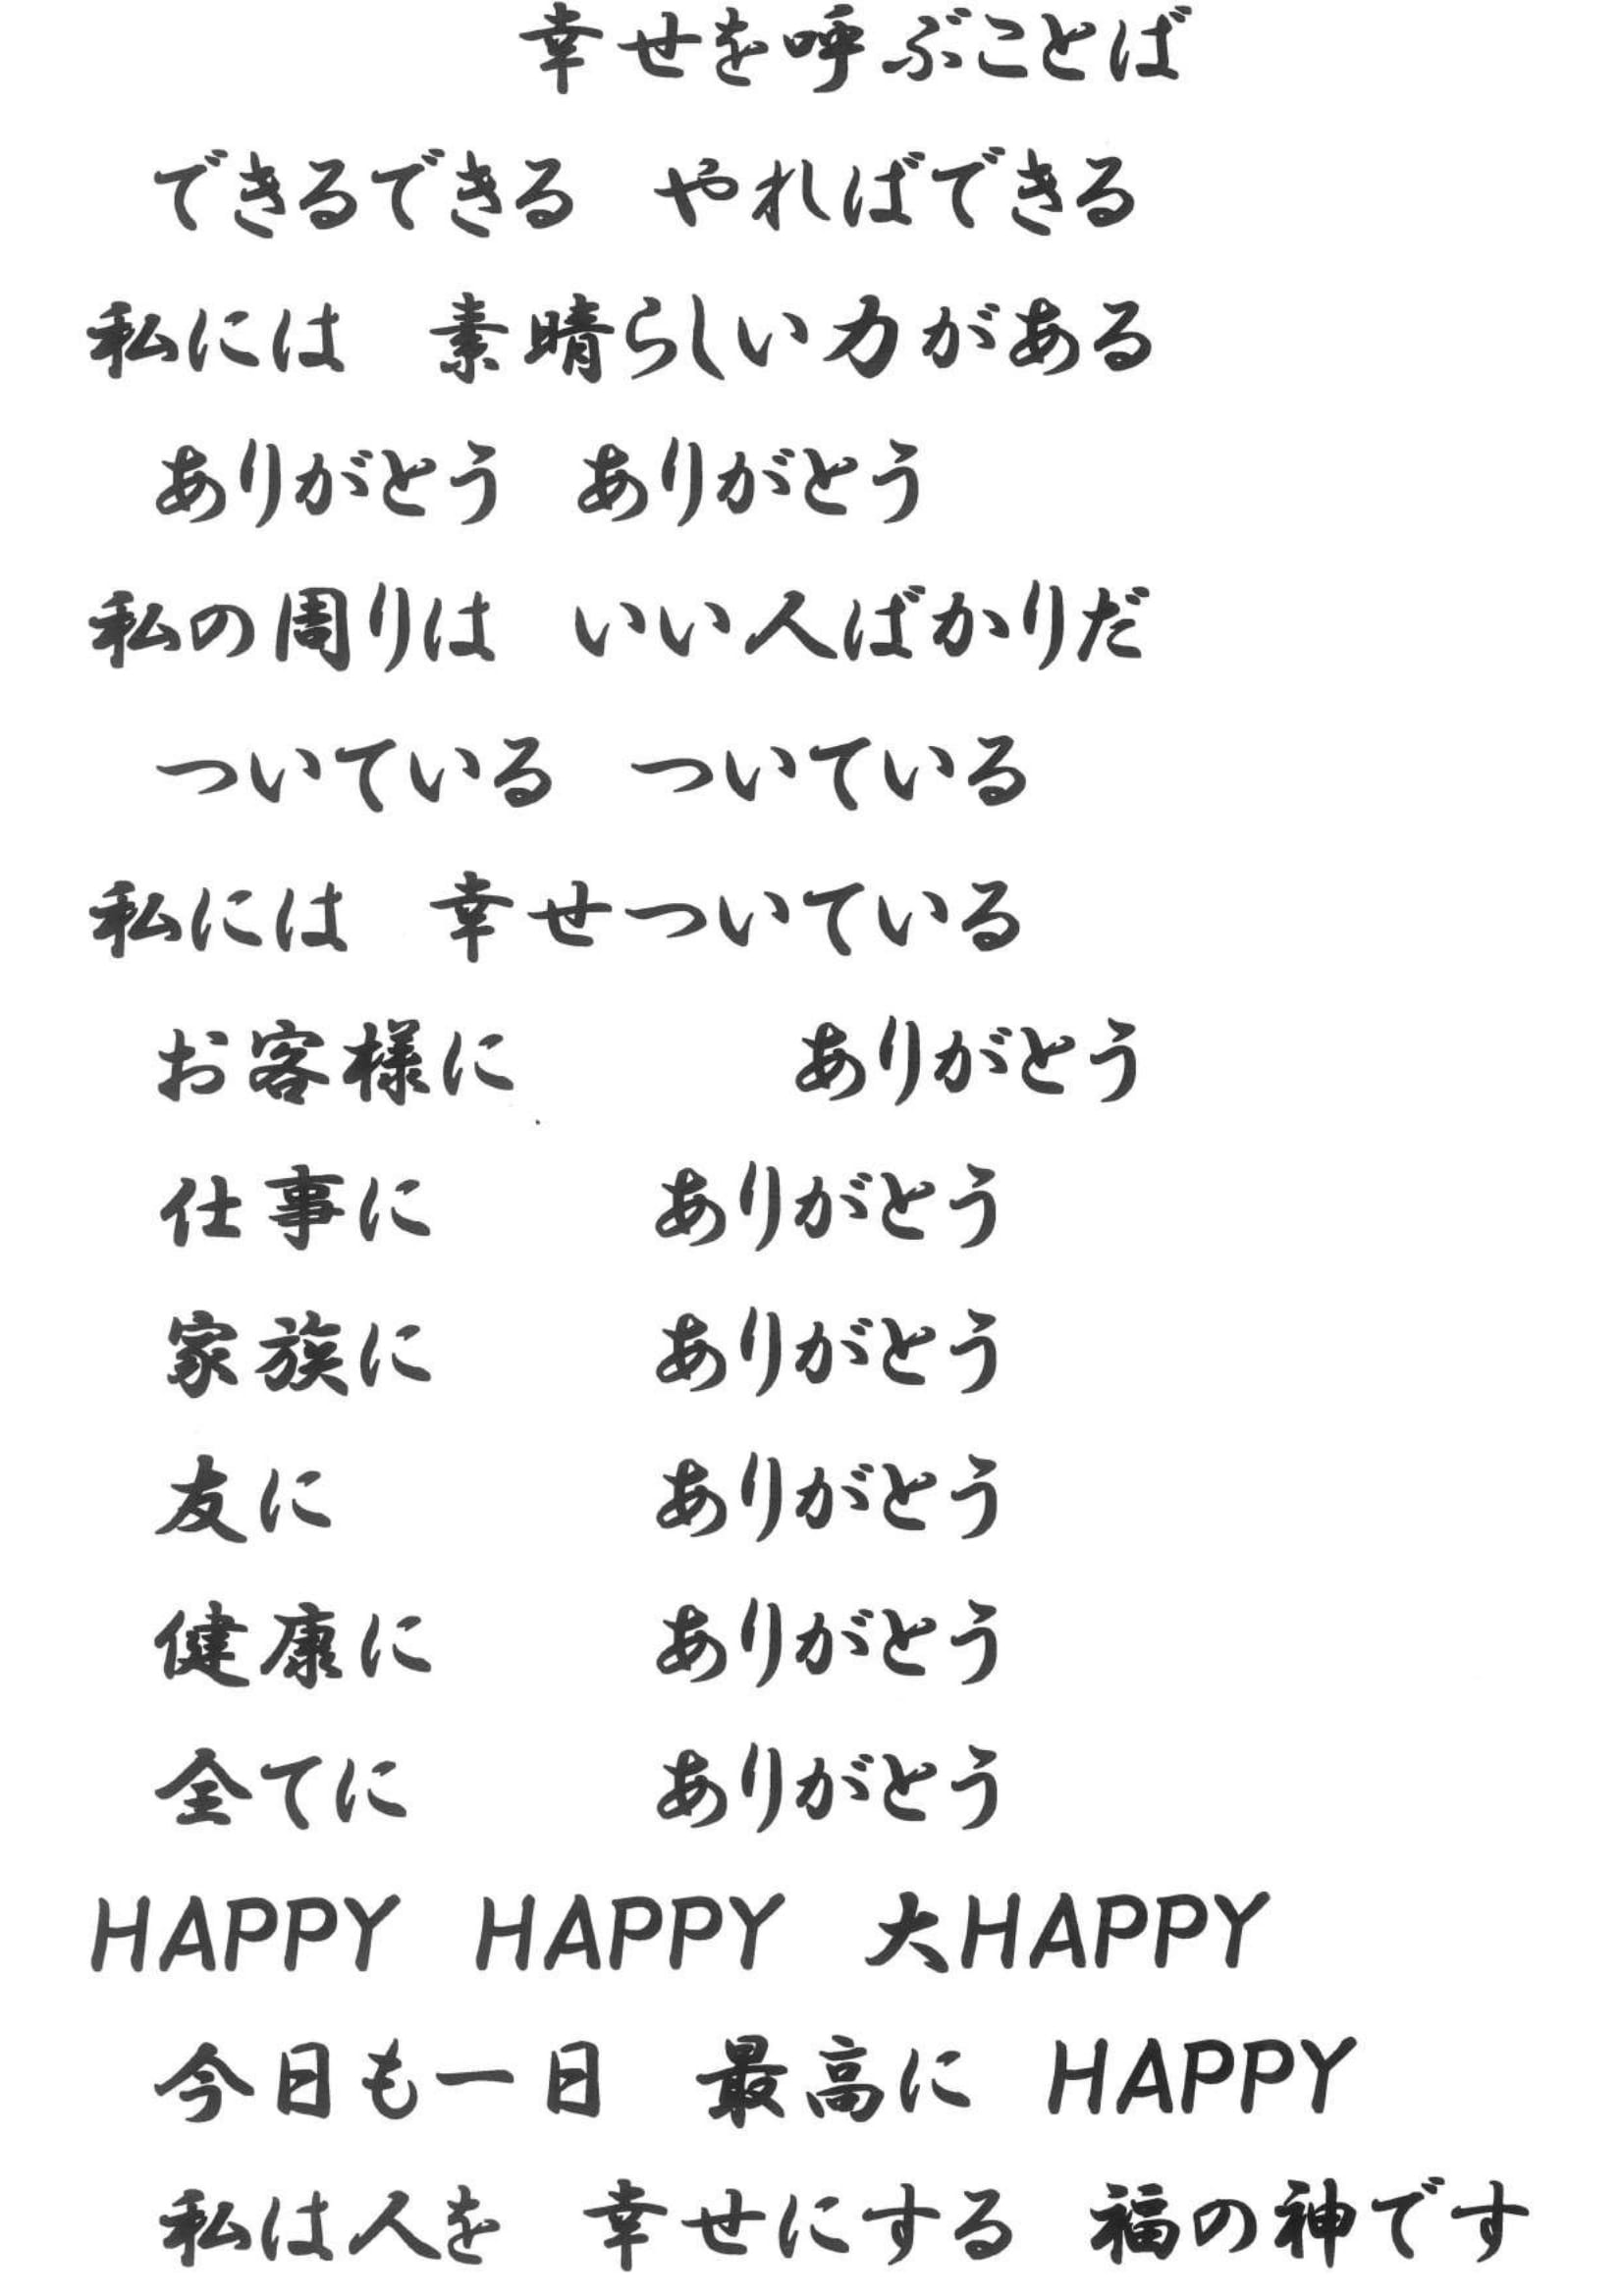 幸せを呼ぶことば
できるできる　やればできる
私には　素晴らしい力がある
ありがとう　ありがとう
私の周りは　いい人ばかりだ
ついている　ついている
私には　幸せついている
お客様に　ありがとう
仕事に　ありがとう
家族に　ありがとう
友に　ありがとう
健康に　ありがとう
全てに　ありがとう
HAPPY　HAPPY　大HAPPY
今日も一日　最高に　HAPPY
私は人を　幸せにする　福の神です